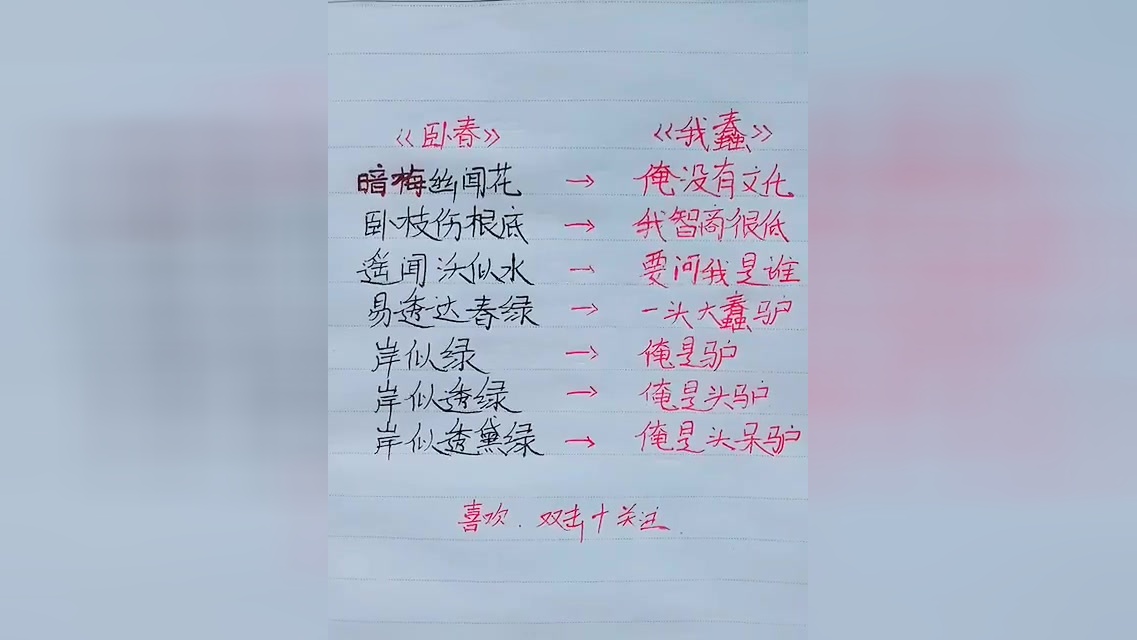 《卧春》 《我蠢》
暗梅丝闻花 → 俺没有文化
卧枝伤根底 → 我智商很低
遥闻沃似水 → 要问我是谁
易透达春绿 → 一头大蠢驴
岸似绿 → 俺是驴
岸似透绿 → 俺是头驴
岸似透黛绿 → 俺是头呆驴
喜欢.双击十关注.